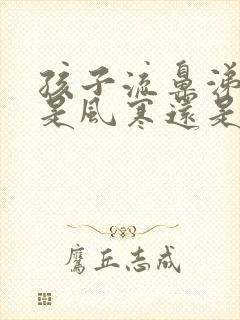 孩子流鼻涕
是風寒還是
鷹丘志成